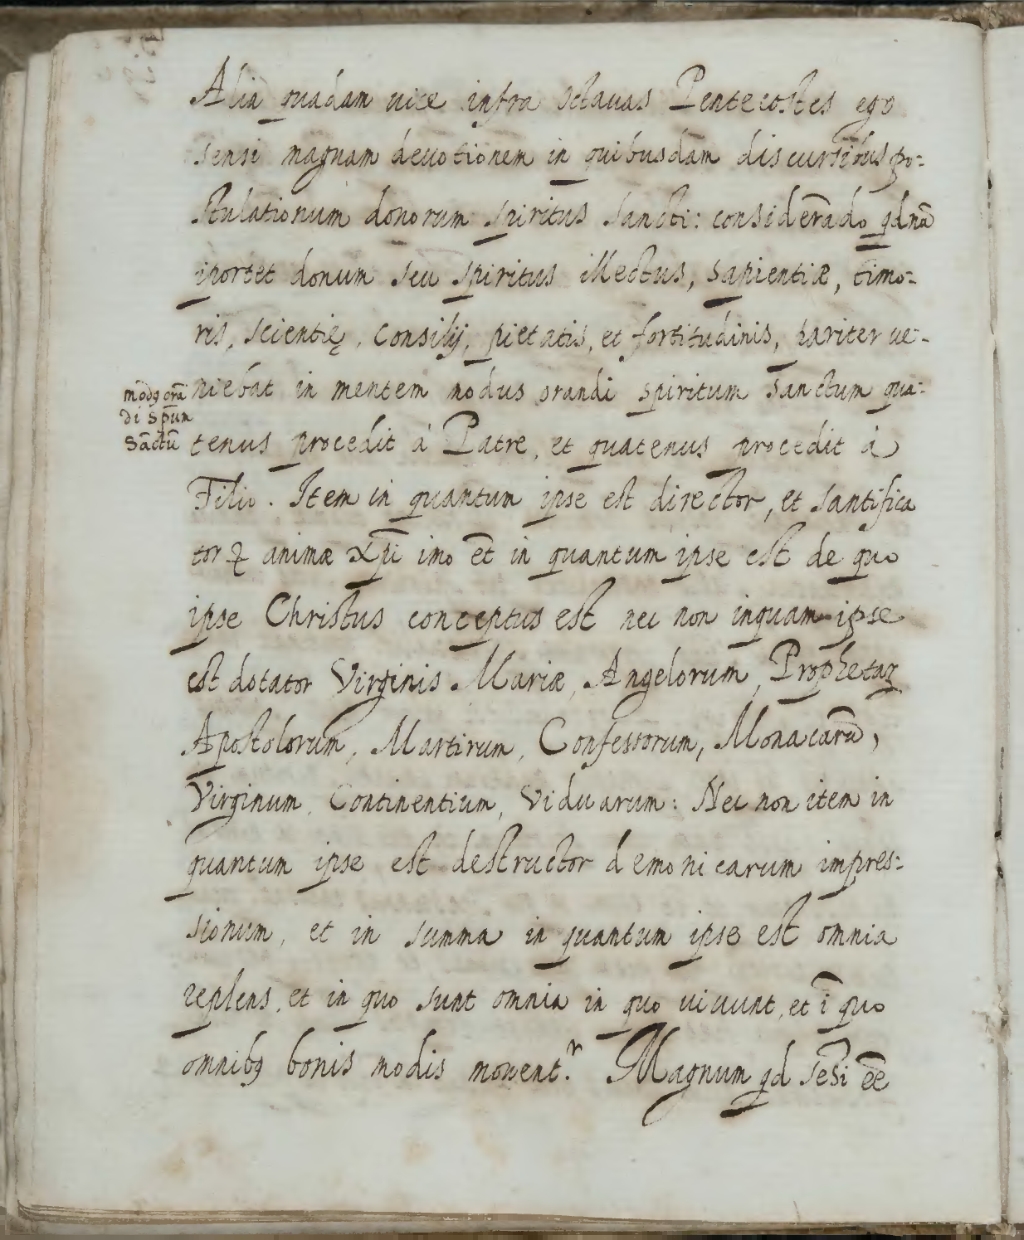 Alia quadam uice infra octauas Pentecostes ego
sensi magnam deuotionem in quibusdam discursibus po-
stulationum donorum spiritus sancti: considerãdo qd nã
iportet donum seu spiritus illectus, sapientiæ, timo-
ris, scientię, consilij, pietatis, et fortitudinis, pariter ue-
niebat in mentem modus orandi spiritum sanctum qua-
modꝯ orã
di Spũm
Sãctũ
tenus procedit à Patre, et quatenus procedit à
Filio. Item in quantum ipse est director, et santifica
tor animæ Xp̃i imo et̃ in quantum ipse est de quo
ipse Christus conceptus est nec non inquam ipse
est dotator Virginis Mariæ, Angelorum, Prophetaꝝ
Apostolorum, Martirum, Confessorum, Monacarũ,
Virginum, Continentium, Viduarum: Nec non item in
quantum ipse est destructor demonicarum impres-
sionum, et in summa in quantum ipse est omnia
replens, et in quo sunt omnia in quo uiuunt, et ĩ quo
omnibꝯ bonis modis mouentʳ. Magnum qd sẽsi eẽ